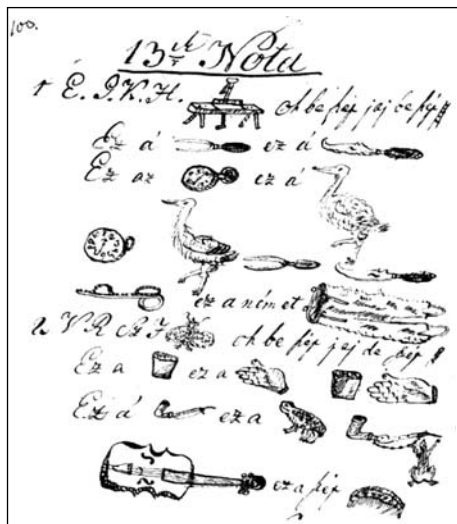 100.
13ik Nota
1 É. I. K. H. oh be szép jaj be szép
Ez á ez á
Ez az ez á
ez a német
2 V R oh be szép jaj de szép
Ez a ez a
Ez á ez a
ez a szép